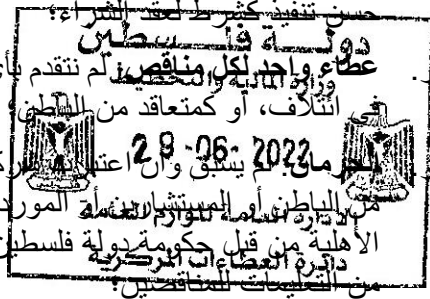 حسن تنفيذ كشرط لعقد الشراء؛
دولة فلسطين
عطاء واحد لكل مناقص: لم نتقدم بأي
وزارة المالية والتخطيط
في ائتلاف، أو كمتعاقد من الباطن؛
29-06-2022
الحرمان: لم يسبق وأن اعتبرت
من الباطن أو المستشارين أو المورد
الإدارة العامة للوازم العامة
الأهلية من قبل حكومة دولة فلسطين
دائرة العطاءات المركزية
من التعليمات للمناقصين؛